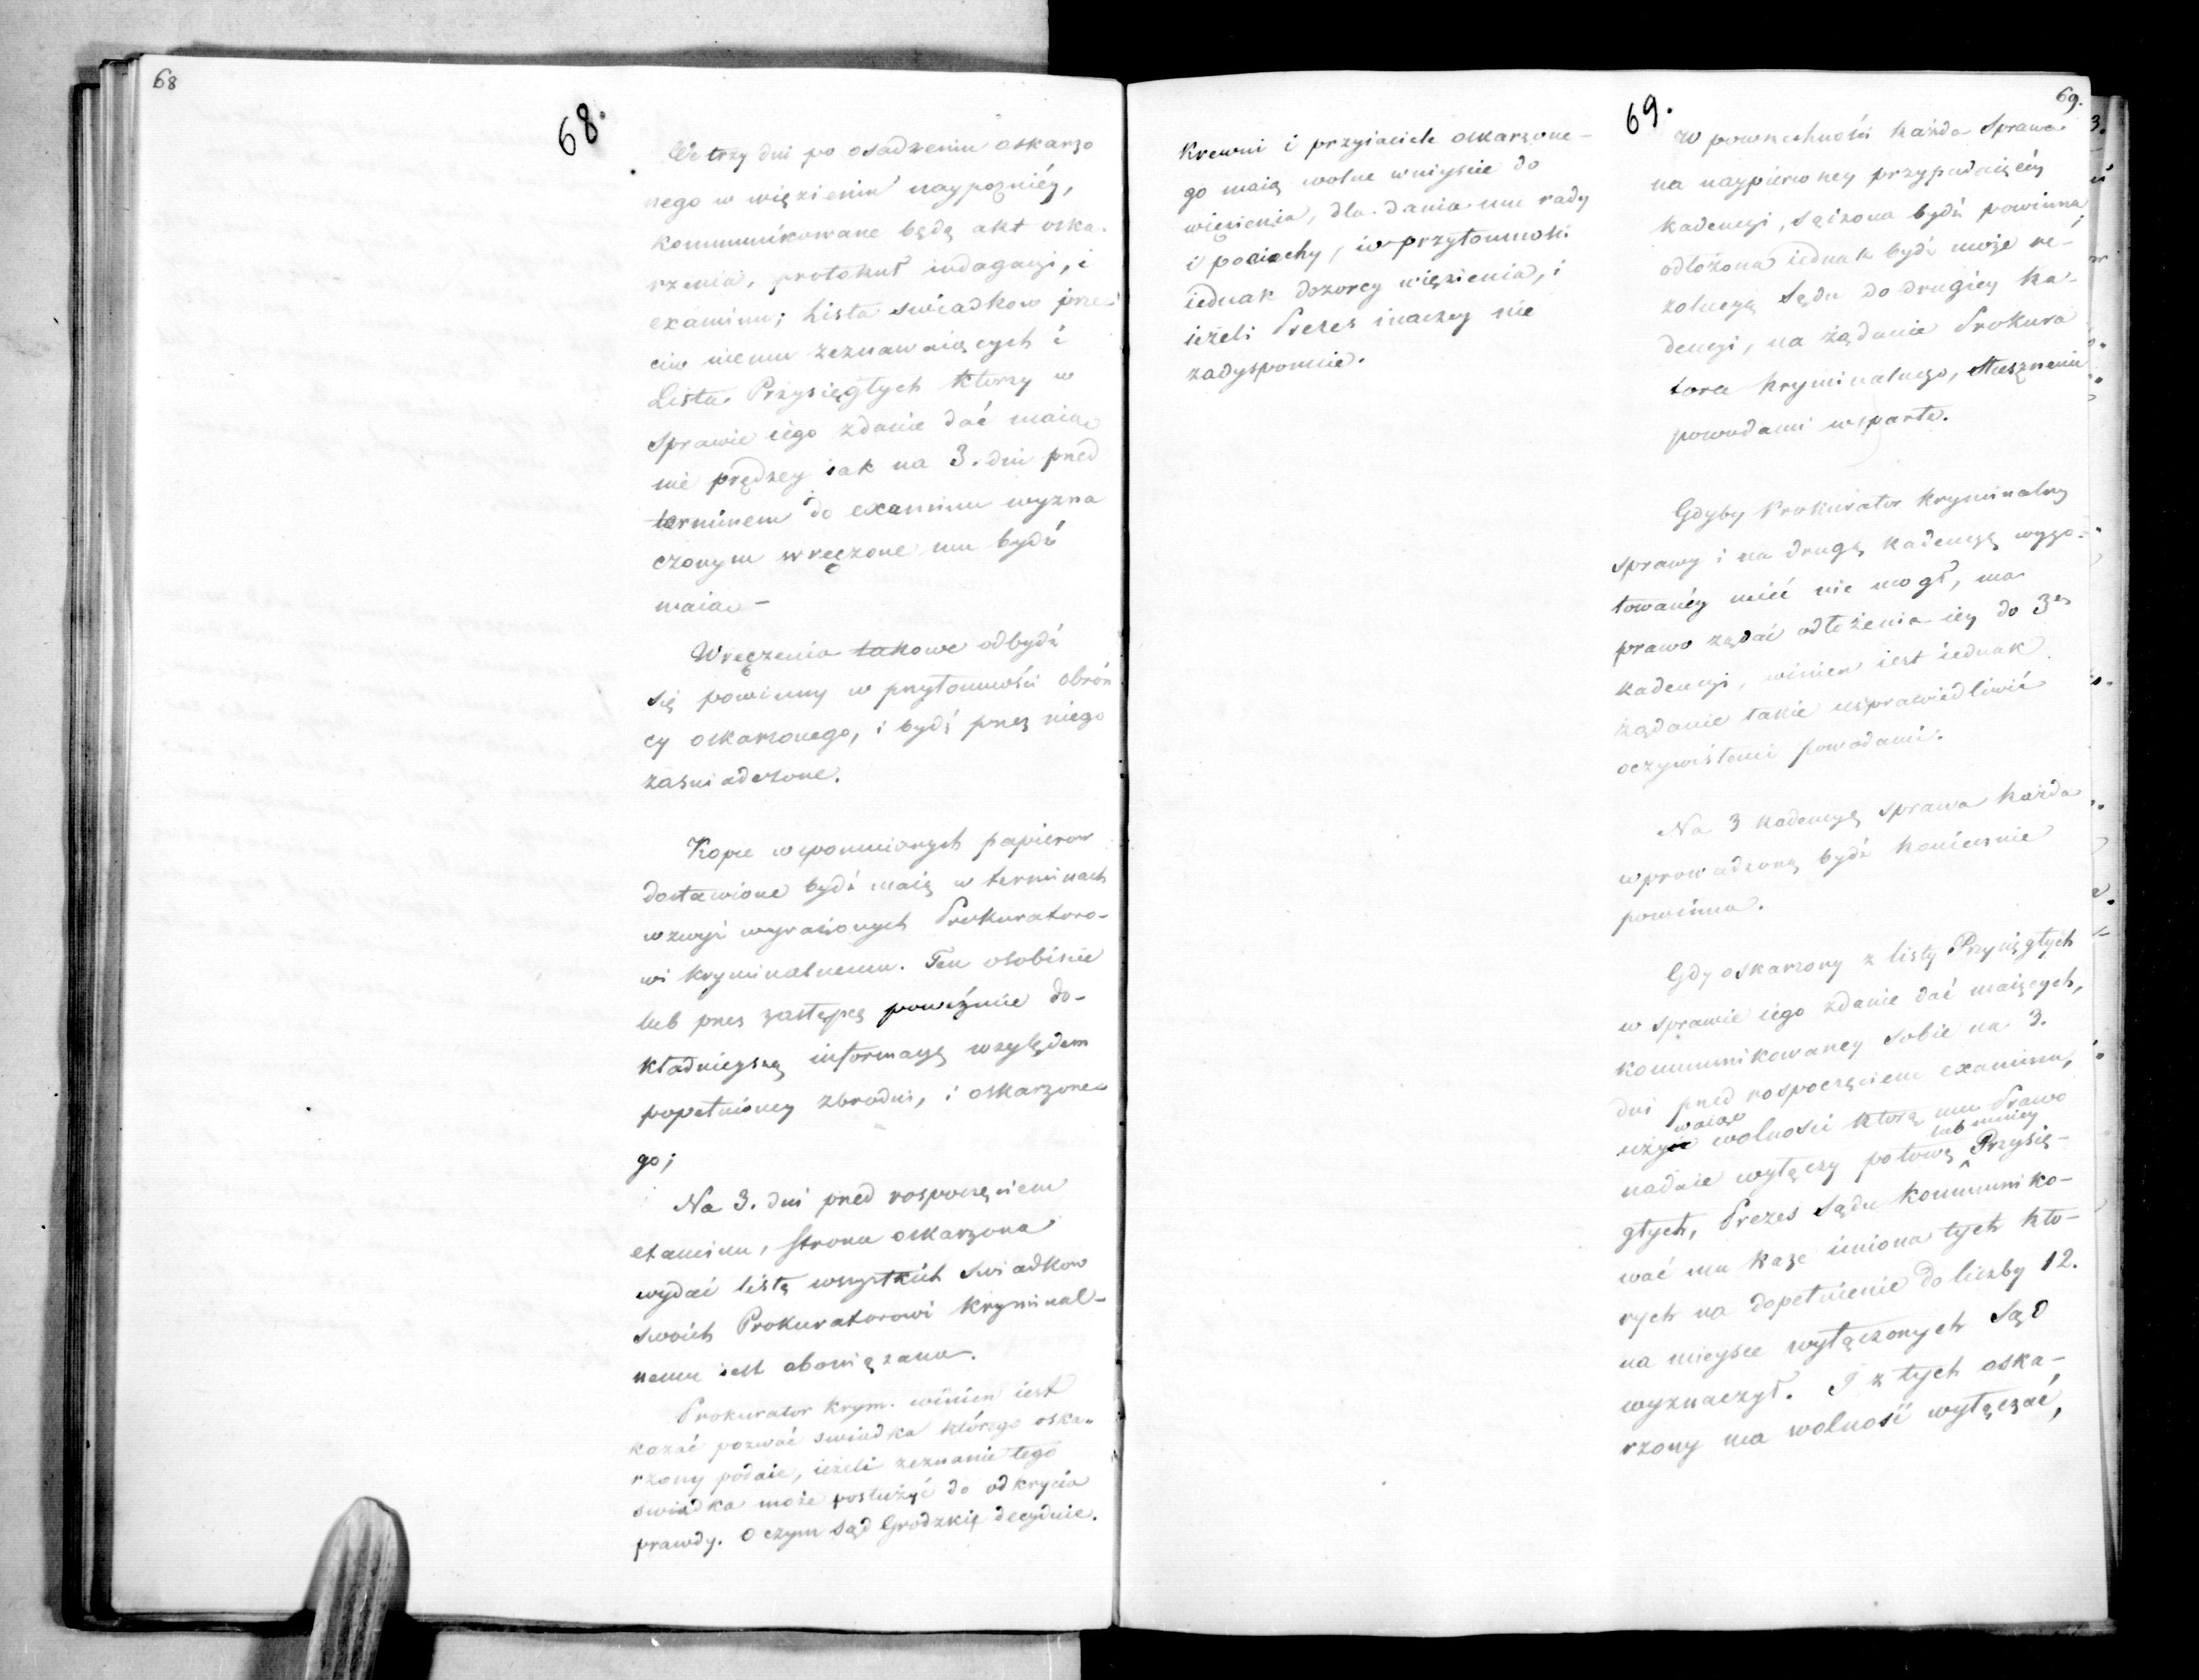 68
68.
We trzy dni po osadzeniu oskarżo
nego w więzieniu naypozniéy,
kommunikowane będą akt oska-
rzenia, protokuł indagacyi, i
examinu; Lista swiadkow prze
ciw niemu zeznawaiących i
Lista Przysięgłych ktorzy w
sprawie iego zdanie dać maią
nie prędzey iak na 3. dni przed
terminem do examinu wyzna
czonym wręczone mu bydź
maią –
Wręczenia takowe odbydź
się powinny w przytomności obroń
cy oskarzonego, i bydź przez niego
zaswiadczone.
Kopie wspomnionych papierow
dostawione bydź maią w terminach
wzwyż wyrażonych Prokuratoro-
wi kryminalnemu. Ten osobiscie
lub przez zastępcę poweźmie do-
kładnieyszą informacyą względem
popełnioney zbrodni, i oskarzone
go;
Na 3. dni przed rospoczęciem
examinu, strona oskarzona
wydać listę wszystkich swiadkow
swoich Prokuratorowi kryminal-
nemu iest obowiązana.
Prokurator krym. winien iest
kazać pozwać swiadka którego oska-
rzony podaie, ieżeli zeznanie tego
swiadka może posłużyć do odkrycia
prawdy. O czym Sąd Grodzki decyduie.
69.
69.
Krewni i przyiaciele oskarzone-
go maią wolne wniyscie do
więzienia, dla dania mu rady
i pociechy, w przytomności
iednak dozorcy więzienia, i
ieżeli Prezes inaczey nie
zadysponuie.
W powszechności każda sprawa
na naypierwszey przypadaiącéy
kadencyi, sądzona bydź powinna,
odłożona iednak bydź może re-
zolucyą Sądu do drugiéy ka-
dencyi, na żądanie Prokura
tora kryminalnego, słusznemi
powodami wsparte.
Gdyby Prokurator kryminalny
sprawy i na drugą kadencyą wygo-
towanéy mieć nie mogł, ma
prawo żądać odłożenia iey do 3ey
kadencyi, winien iest iednak
żądanie takie usprawiedliwić
oczywistemi powodami.
Na 3 kadencyą sprawa każda
wprowadzoną bydź koniecznie
powinna.
Gdy oskarzony z listy Przysięgłych
w sprawie iego zdanie dać maiących,
kommunikowaney sobie na 3.
dni przed rospoczęciem examinu,
używaiąc wolności którą mu Prawo
nadaie wyłączy połowę lub mniey Przysię-
głych, Prezes Sądu kommuniko-
wać mu każe imiona tych kto-
rych na dopełnienie do liczby 12.
na mieysce wyłączonych Sąd
wyznaczył. I z tych oska-
rzony ma wolność wyłączać,